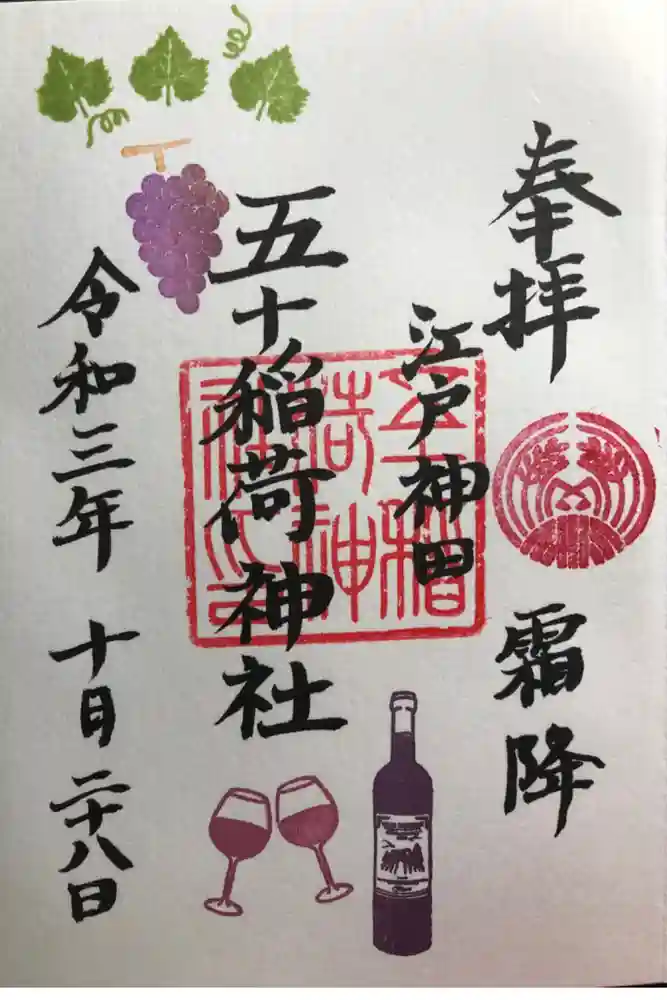 奉拝
霜降
江戸神田
五十稲荷神社
令和三年 十月二十八日